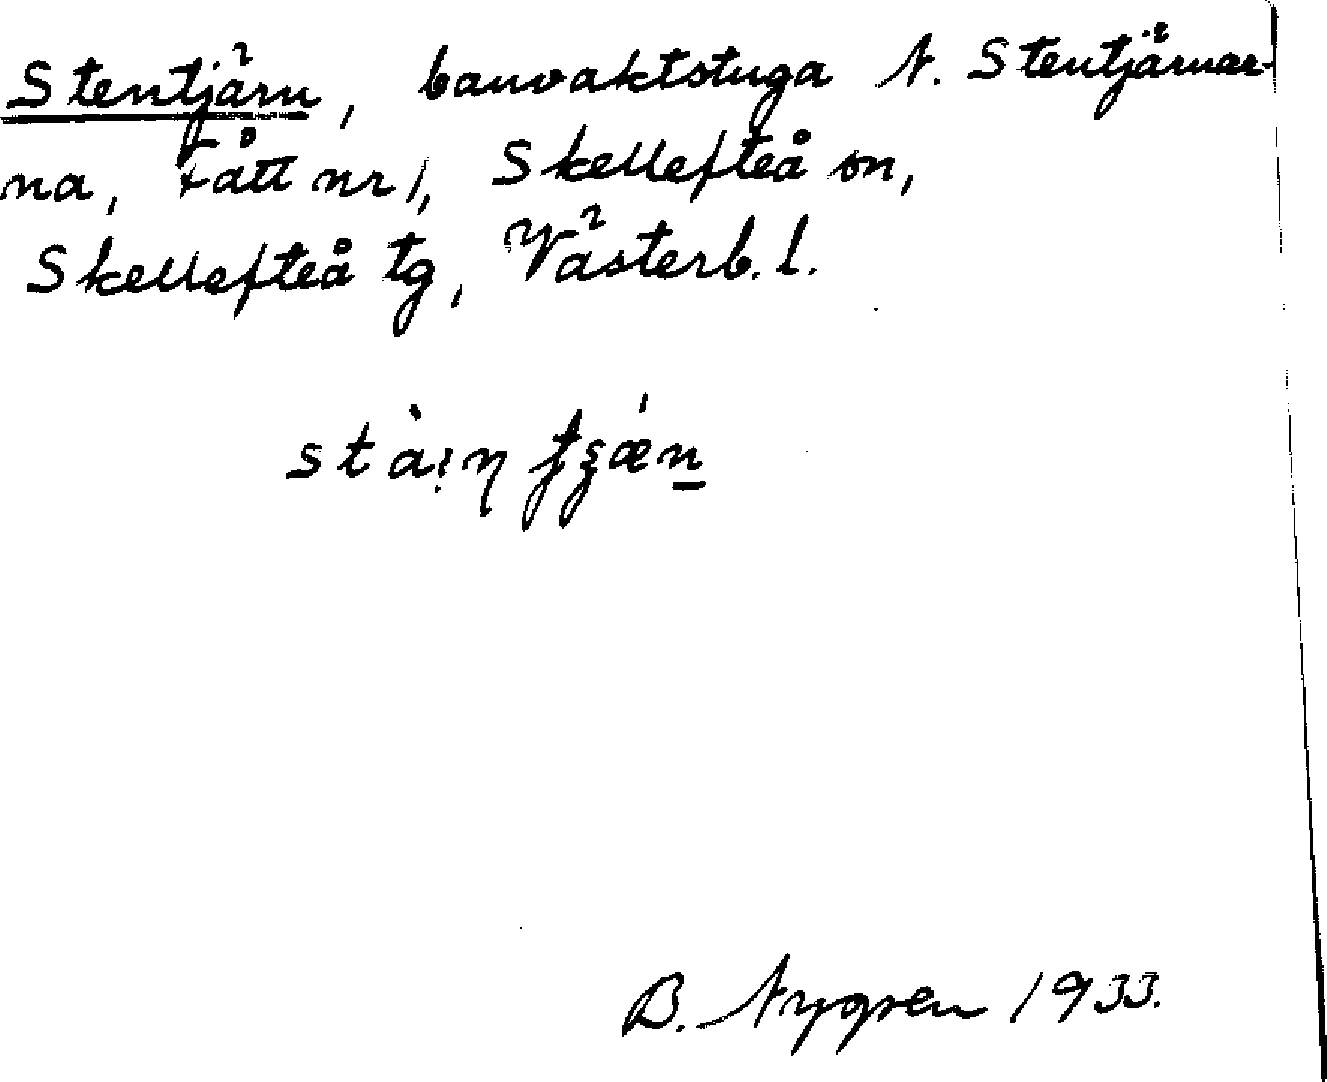 Stentjärn, banvaktstuga N. Stentjärnar-
na, Tått nr 1, Skellefteå sn,
Skellefteå tg, Västerb. l.
B. Nygren 1933.